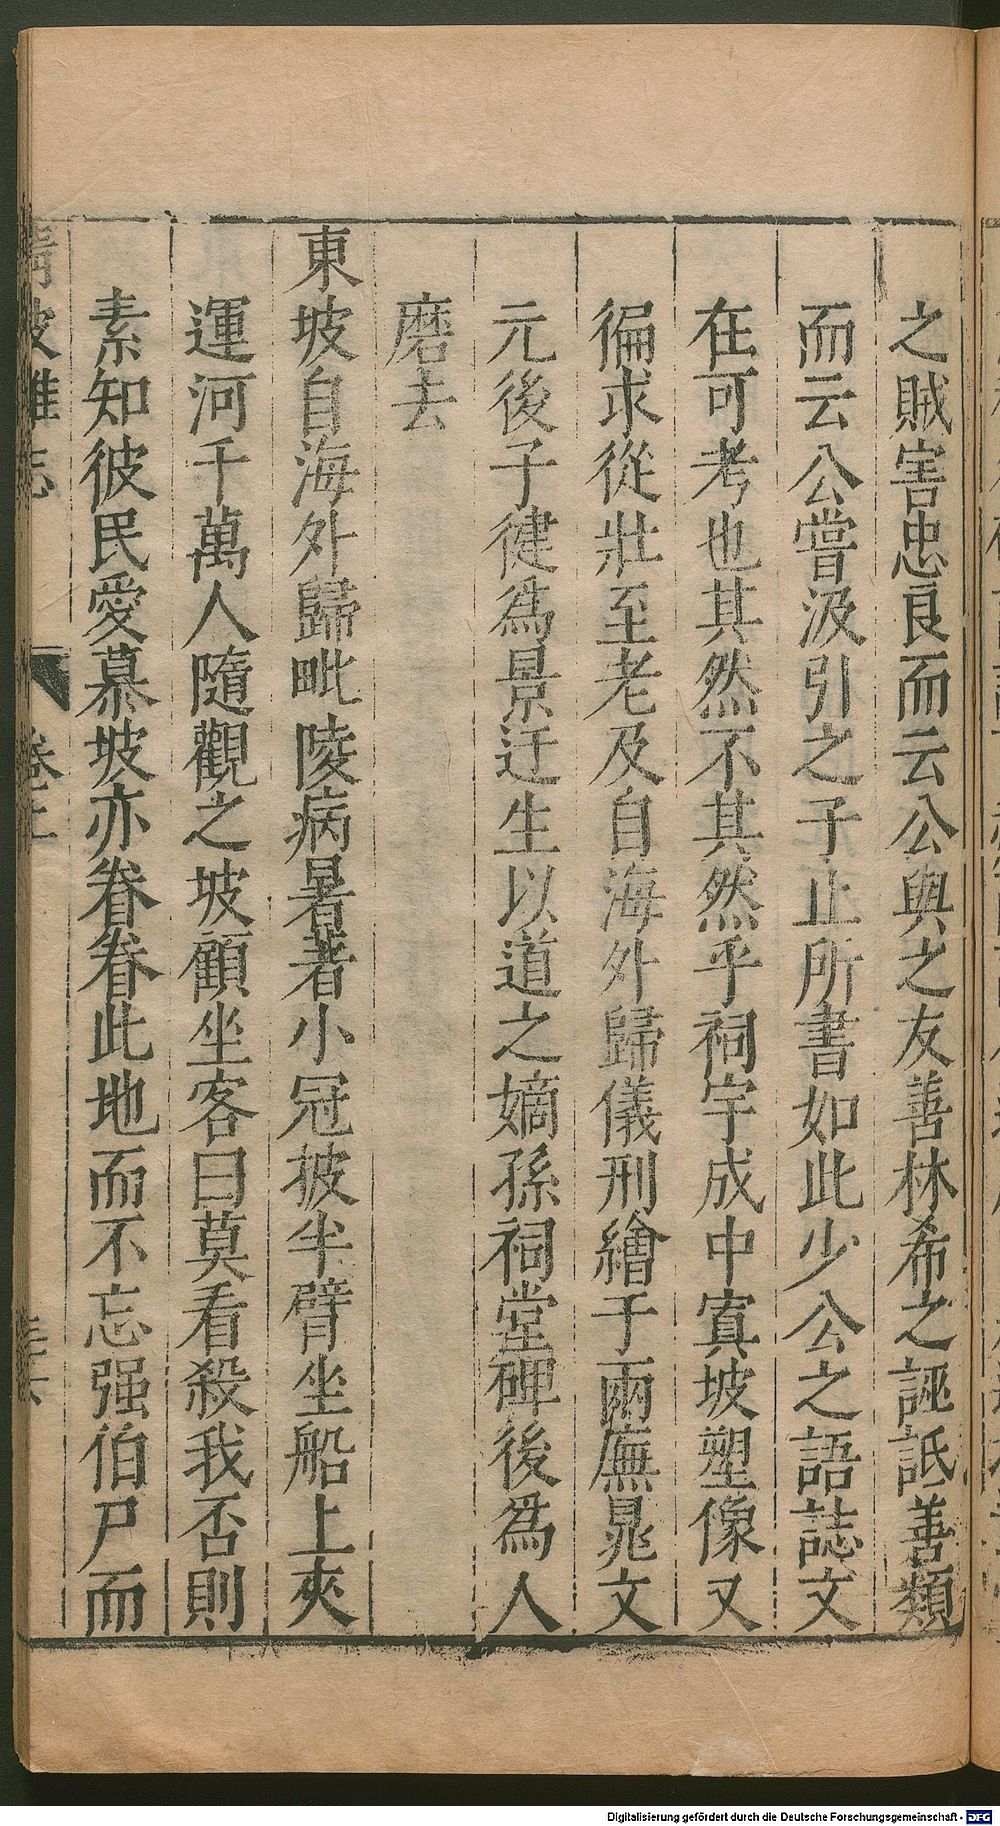 之賊害忠良而云公與之友善林希之誣詆善類
而云公嘗汲引之子止所書如此少公之語誌文
在可考也其然不其然乎祠宇成中寘坡塑像又
徧求從壯至老及自海外歸儀刑繪于兩廡晁文
元後子健爲景迂生以道之嫡孫祠堂碑後爲人
磨去
東坡自海外歸毗陵病暑著小冠披半臂坐船上夾
運河千萬人隨觀之坡顧坐客曰莫看殺我否則
素知彼民愛慕坡亦眷眷此地而不忘强伯尸而
清波雜志 卷三
Digitalisierung gefördert durch die Deutsche Forschungsgemeinschaft - DFG